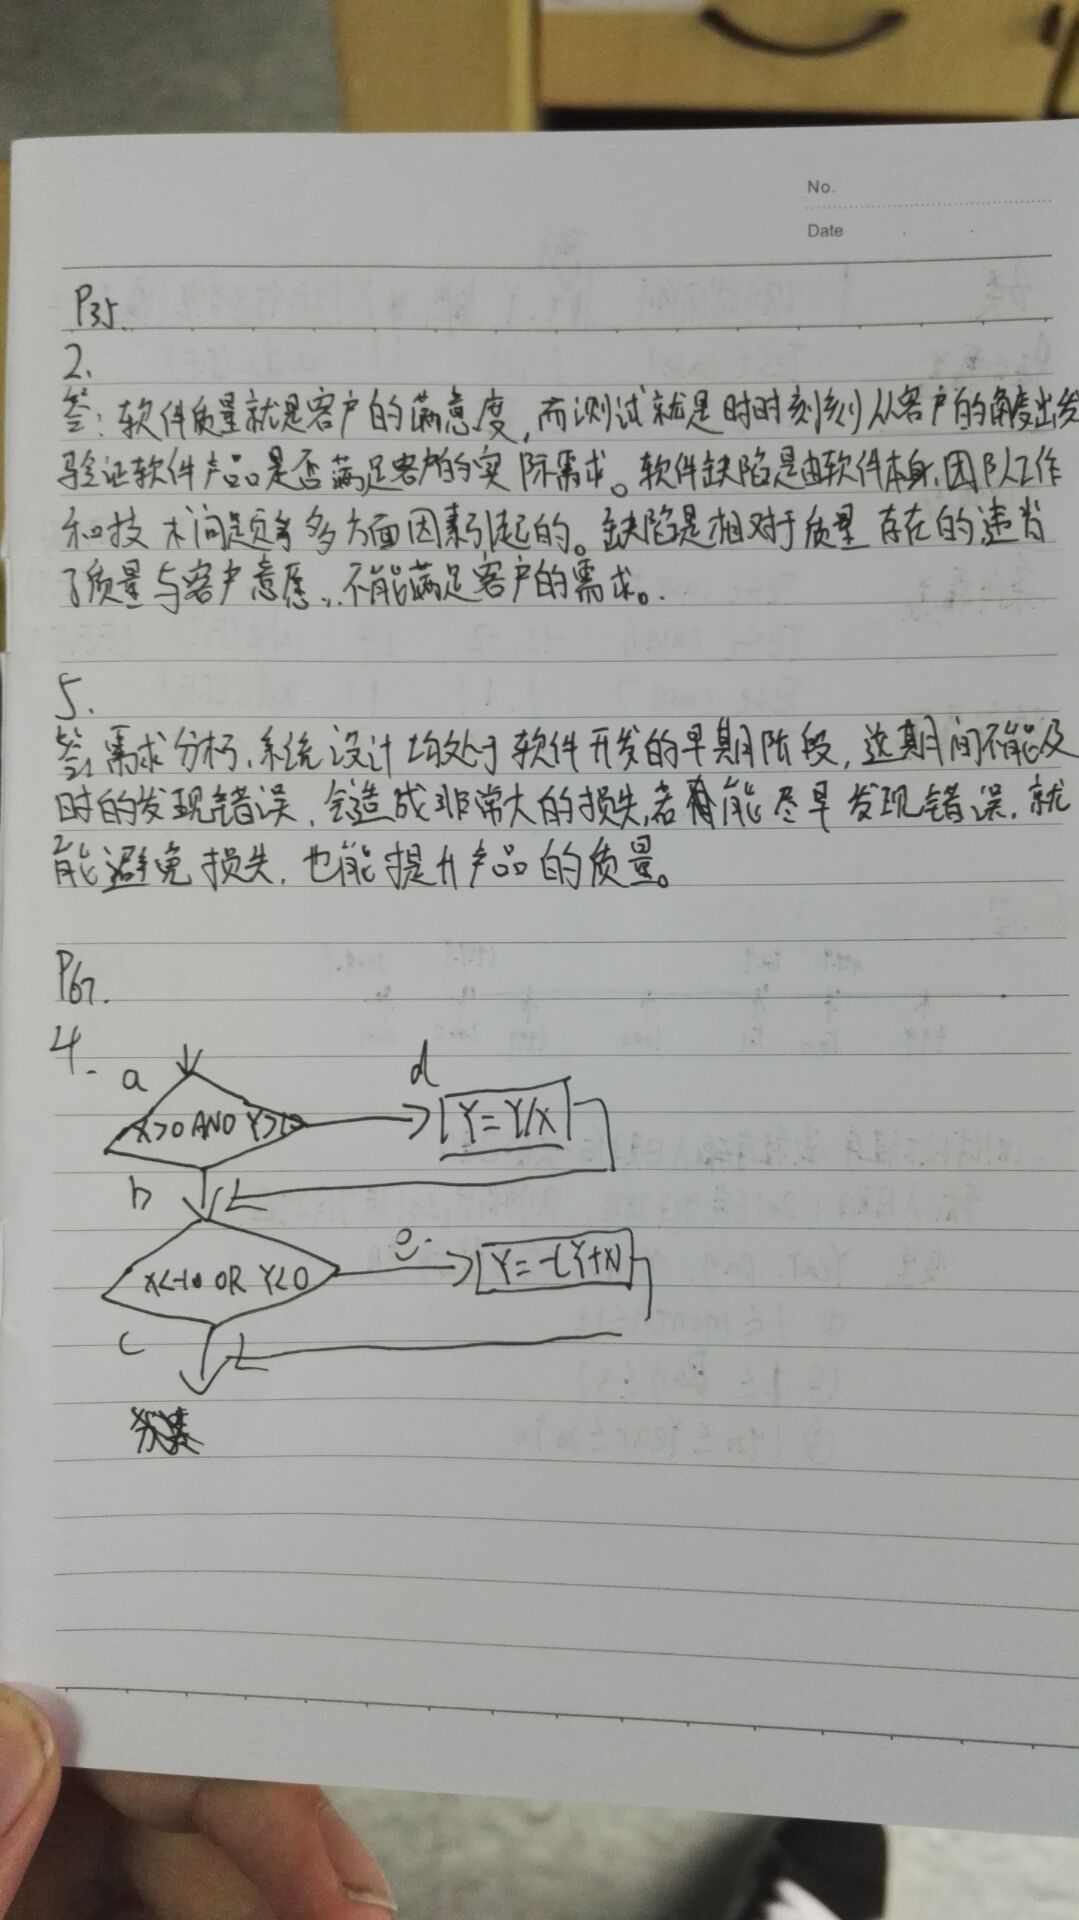 No.
Date
P35.
2.
答：软件质量就是客户的满意度，而测试就是时时刻刻从客户的角度出发
验证软件产品是否满足客户的实际需求。软件缺陷是由软件本身、团队工作
和技术问题等多方面因素引起的。缺陷是相对于质量存在的，违背
了质量与客户意愿，不能满足客户的需求。
5.
答：需求分析、系统设计均处于软件开发的早期阶段，这期间不能及
时的发现错误，会造成非常大的损失，若能尽早发现错误，就
能避免损失，也能提升产品的质量。
P67.
4.
a
d
X>0 AND Y>10
Y=Y/X
b
e
X<-10 OR Y<0
Y=-(Y+X)
c